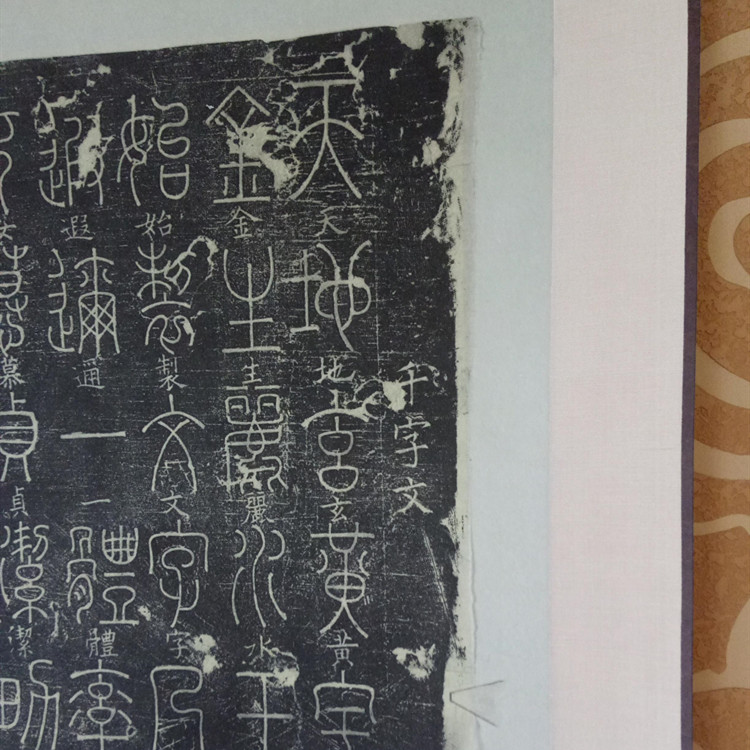 千字文
天天地地玄玄黃黃宇
金金生生麗麗水水玉
始始製製文文字字乃
遐遐邇邇一一體體率
女女慕慕貞貞潔潔男